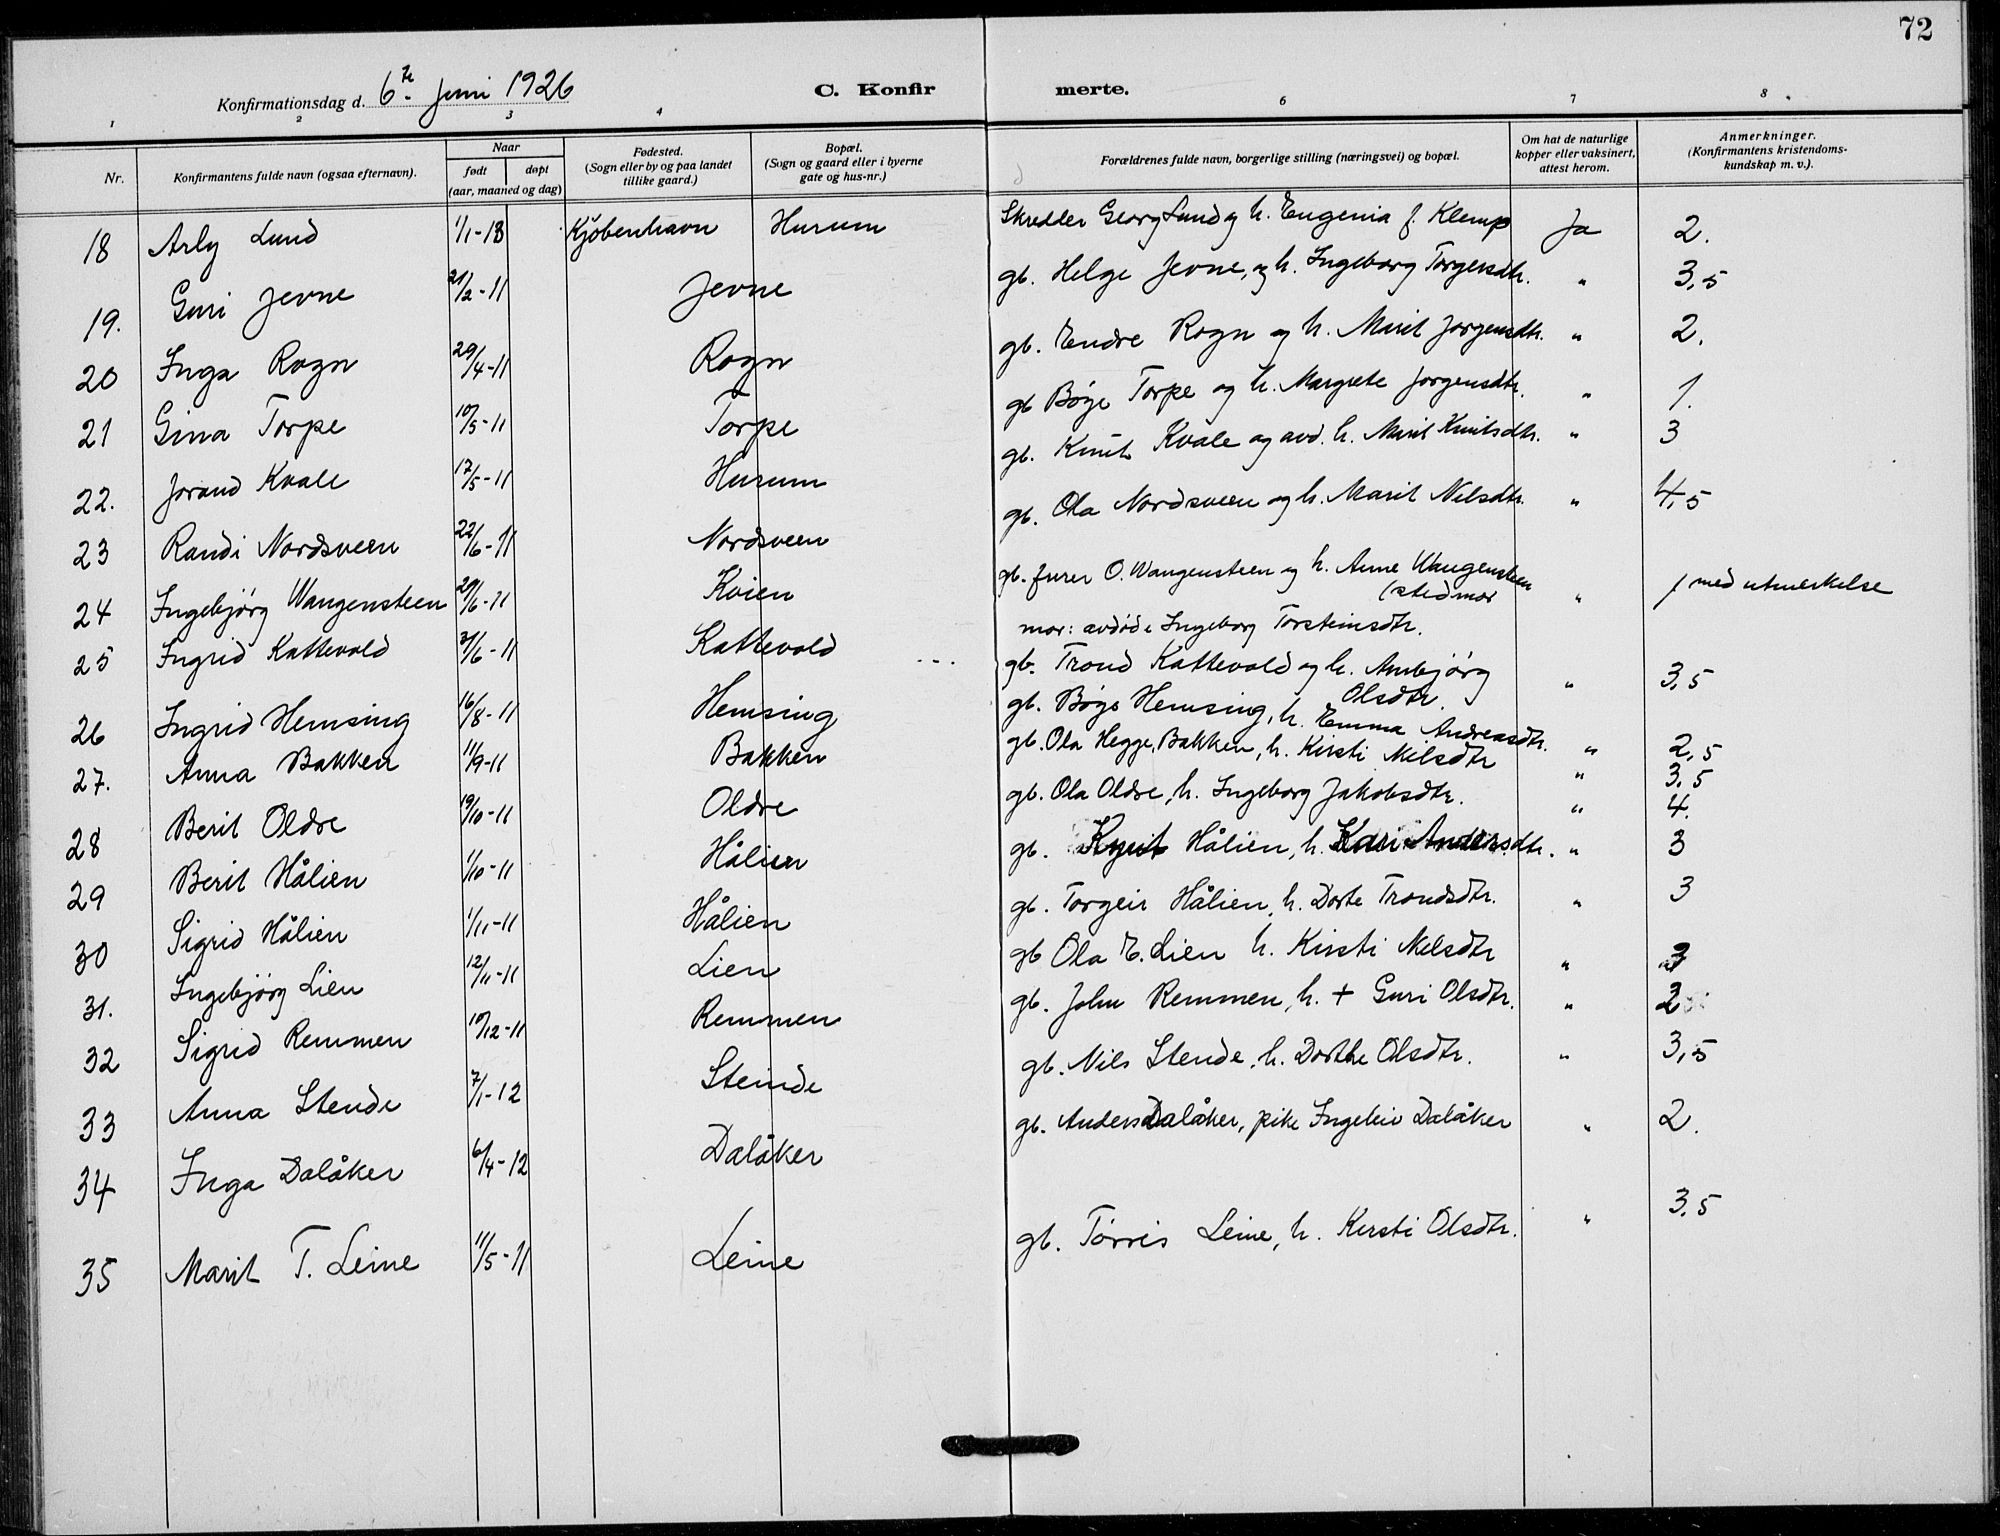 72
Konfirmationsdag d. 6te juni 1926 C. Konfirmerte.
1 2 3 4 6 7 8
Nr. Konfirmantens fulde navn (ogsaa efternavn). Naar født døpt (aar, maaned og dag) Fødested. (Sogn eller by og paa landet tillike gaard.) Bopæl. (Sogn og gaard eller i byerne gate og hus-nr.) Forældrenes fulde navn, borgerlige stilling (næringsvei) og bopæl. Om hat de naturlige kopper eller vaksinert, attest herom. Anmerkninger. (Konfirmantens kristendomskundskap m. v.)
18 Arly Lund 1/1-13 Kjøbenhavn Hurum Skredder Georg Lund og h. Eugenia f. Klemp Ja 2.
19. Guri Jevne 21/2-11 Jevne gb. Helge Jevne, og h. Ingeborg Torgersdtr. " 3,5
20 Inga Rogn 29/4-11 Rogn gb. Endre Rogn og h. Marit Jørgensdtr. " 2.
21 Gina Torpe 10/5-11 Torpe gb Bøye Torpe og h. Margrete Jorgensdtr. " 1.
22. Jorand Kvale 17/5-11 Hurum gb. Knut Kvale og avd. h. Marit Knutsdtr. " 3
23 Randi Nordsveen 22/6-11 Nordsveen gb. Ola Nordsveen og h. Marit Nilsdtr. " 4,5
24 Ingebjørg Wangensteen 29/6-11 Kvien gb. furer O. Wangensteen og h. Anne Wangensteen " 1 med utmerkelse
(stedmor
mor: avdøde Ingeborg Torsteinsdtr.
25 Ingrid Kattevold 3/6-11 Kattevold ... gb. Trond Kattevold og h. Ambjørg " 3,5
Olsdtr.
26 Ingrid Hemsing 16/8-11 Hemsing gb. Bøye Hemsing, h. Emma Andreasdtr. " 2,5
27. Anna Bakken 11/9-11 Bakken gb. Ola Hegge, Bakken, h. Kirsti Nilsdtr " 3,5
28 Berit Oldre 19/10-11 Oldre gb. Ola Oldre, h. Ingeborg Jakobsdtr. " 4.
29 Berit Hålien 1/10-11 Hålien gb. Knut Hålien, h. Kari Andersdtr. " 3
30 Sigrid Hålien 1/11-11 Hålien gb. Torgeir Hålien, h. Dorte Trondsdtr. " 3
31. Ingebjørg Lien 12/11-11 Lien gb Ola E. Lien h. Kirsti Nilsdtr " 3
32 Sigrid Remmen 10/12-11 Remmen gb. John Remmen, h. + Guri Olsdtr. " 2
33 Anna Stende 7/1-12 Steinde gb. Nils Stende, h. Dorthe Olsdtr. " 3,5
34 Inga Dalåker 6/4-12 Dalåker gb. Anders Dalåker, pike Ingeleiv Dalåker " 2.
35 Marit T. Leine 11/5-11 Leine gb. Tørris Leine, h. Kersti Olsdtr. " 3,5